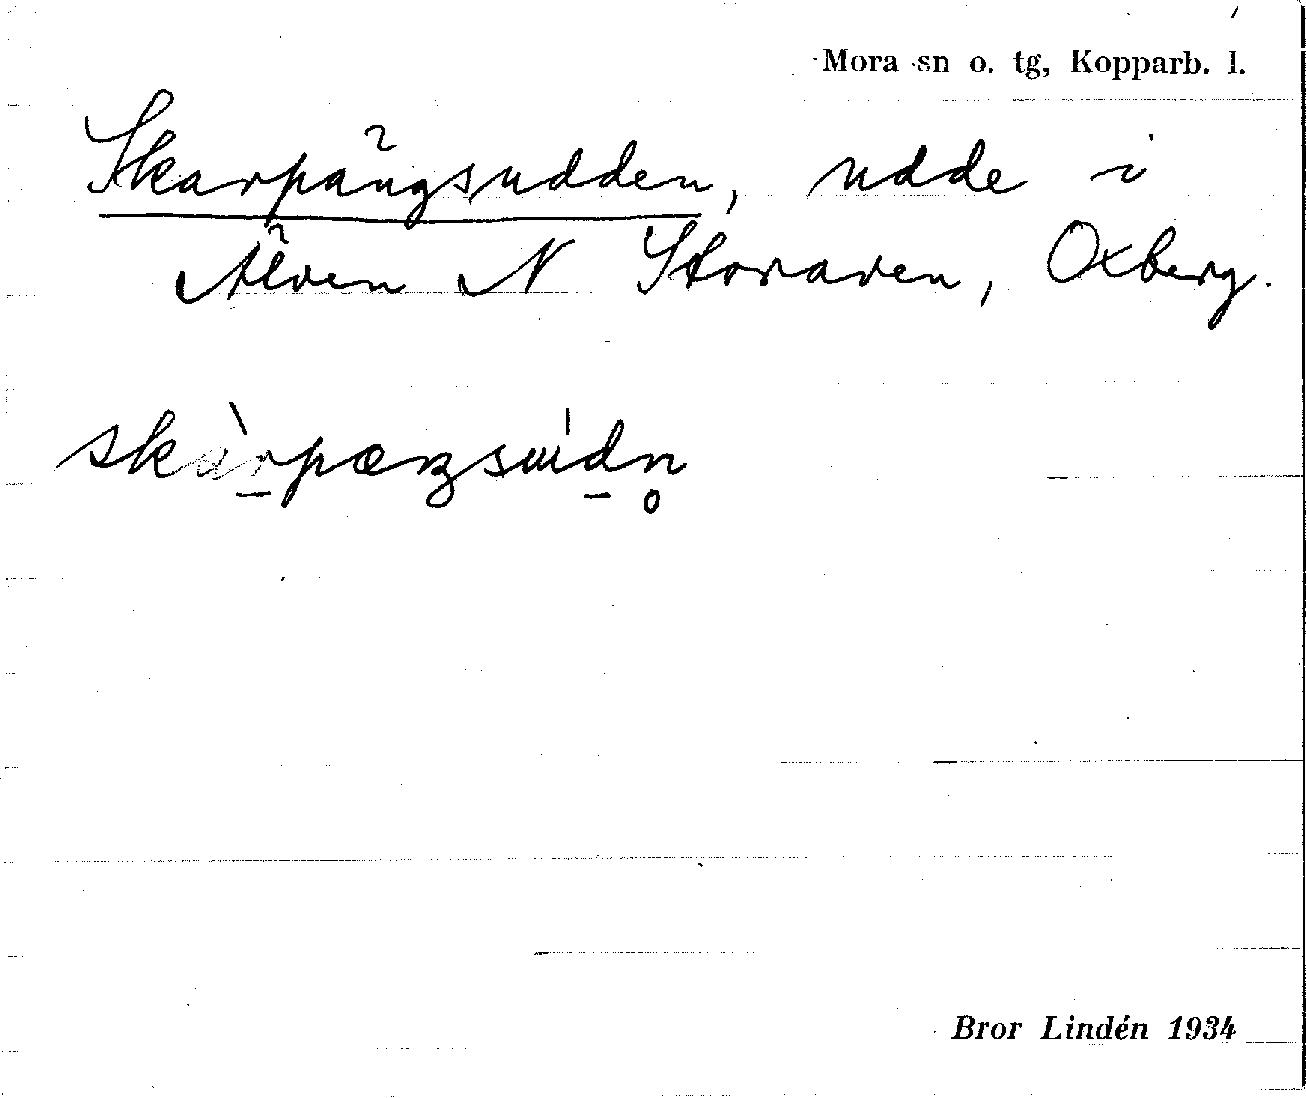 Mora sn o. tg, Kopparb. l.
Skarpängsudden, udde i
Älven N Storaven, Oxberg.
Bror Lindén 1934